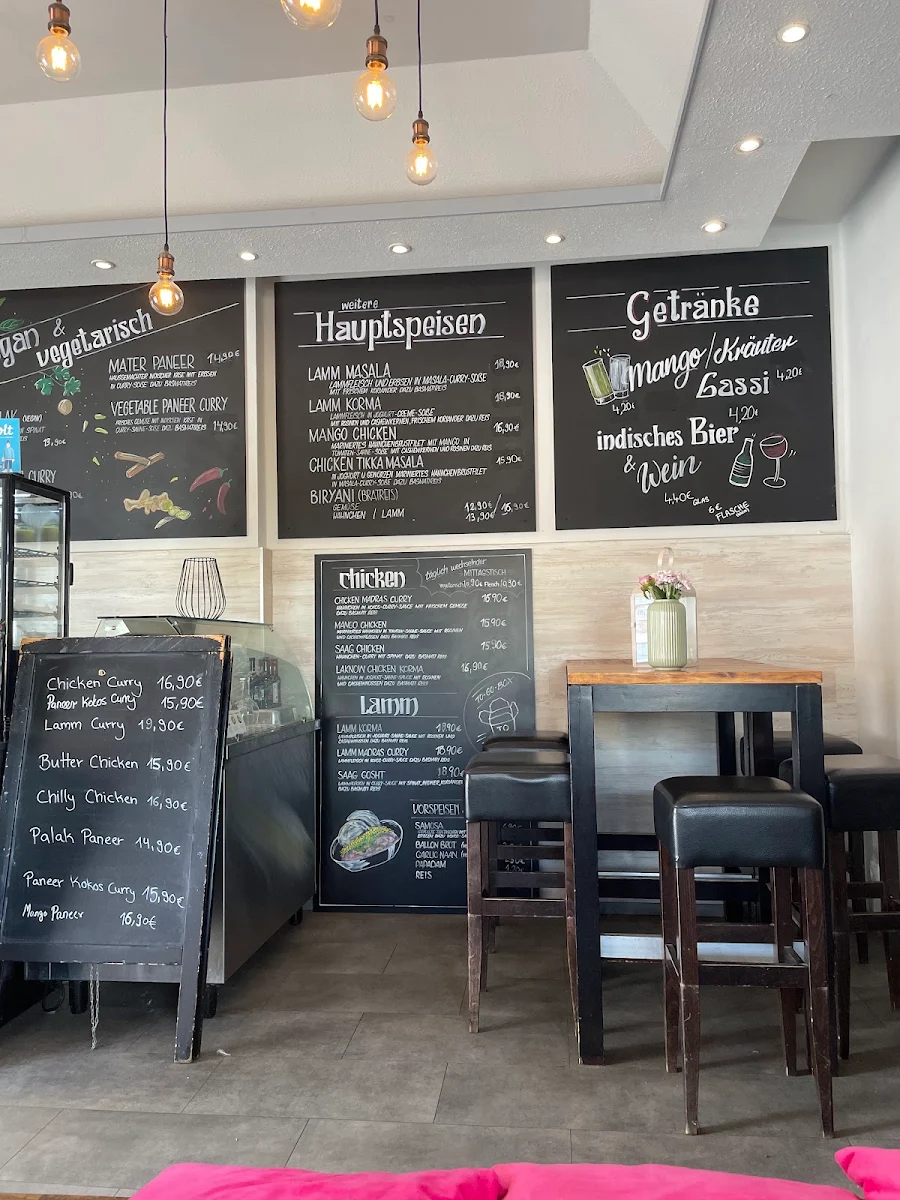 gan &
vegetarisch
MATER PANEER 14,90€
HAUSGEMACHTER INDISCHER KÄSE MIT ERBSEN
IN CURRY-SOSSE DAZU BASMATIREIS
VEGETABLE PANEER CURRY
CURRY-SAHNE-SOSSE DAZU BASMATIREIS 14,90€
13,90€
CURRY
weitere
Hauptspeisen
LAMM MASALA 18,90€
LAMMFLEISCH UND ERBSEN IN MASALA-CURRY-SOSSE
MIT FRISCHEM KORIANDER DAZU REIS
LAMM KORMA 18,90€
LAMMFLEISCH IN JOGHURT-CREME-SOSSE
MIT ROSINEN UND CASHEWKERNEN, FRISCHEM KORIANDER DAZU REIS
MANGO CHICKEN 16,90€
MARINIERTES HÄHNCHENBRUSTFILET MIT MANGO IN
TOMATEN-SAHNE-SOSSE MIT CASHEWKERNEN UND ROSINEN DAZU REIS
CHICKEN TIKKA MASALA 15,90€
IN JOGHURT U GEWÜRZEN MARINIERTES HÄHNCHENBRUSTFILET
IN MASALA-CURRY-SOSSE DAZU BASMATIREIS
BIRYANI (BRATREIS)
GEMÜSE 12,90€
HÄHNCHEN / LAMM 13,90€/15,90€
Getränke
Mango/Kräuter
Lassi 4,20€
4,20€
4,20€
indisches Bier
& Wein
4,40€ GLAS
6€ FLASCHE
chicken
täglich wechselnder
MITTAGSTISCH
CHICKEN MADRAS CURRY 16,90€
HÄHNCHENFLEISCH IN KOKOS-CURRY-SAUCE MIT FRISCHEM GEMÜSE
DAZU BASMATI REIS
MANGO CHICKEN 15,90€
SAAG CHICKEN 15,90€
HÄHNCHEN-CURRY MIT SPINAT DAZU BASMATI REIS
LAKNOW CHICKEN KORMA 16,90€
UND CASHEWKERNEN DAZU BASMATI REIS
TO-GO-BOX
Lamm
LAMM KORMA 18,90€
LAMM MADRAS CURRY 18,90€
SAAG GOSHT 18,90€
DAZU BASMATI REIS
VORSPEISEN
SAMOSA
BALLON BROT
GARLIC NAAN
PAPADAM
REIS
Chicken Curry 16,90€
Paneer Kokos Curry 15,90€
Lamm Curry 19,90€
Butter Chicken 15,90€
Chilly Chicken 16,90€
Palak Paneer 14,90€
Paneer Kokos Curry 15,90€
Mango Paneer 16,90€